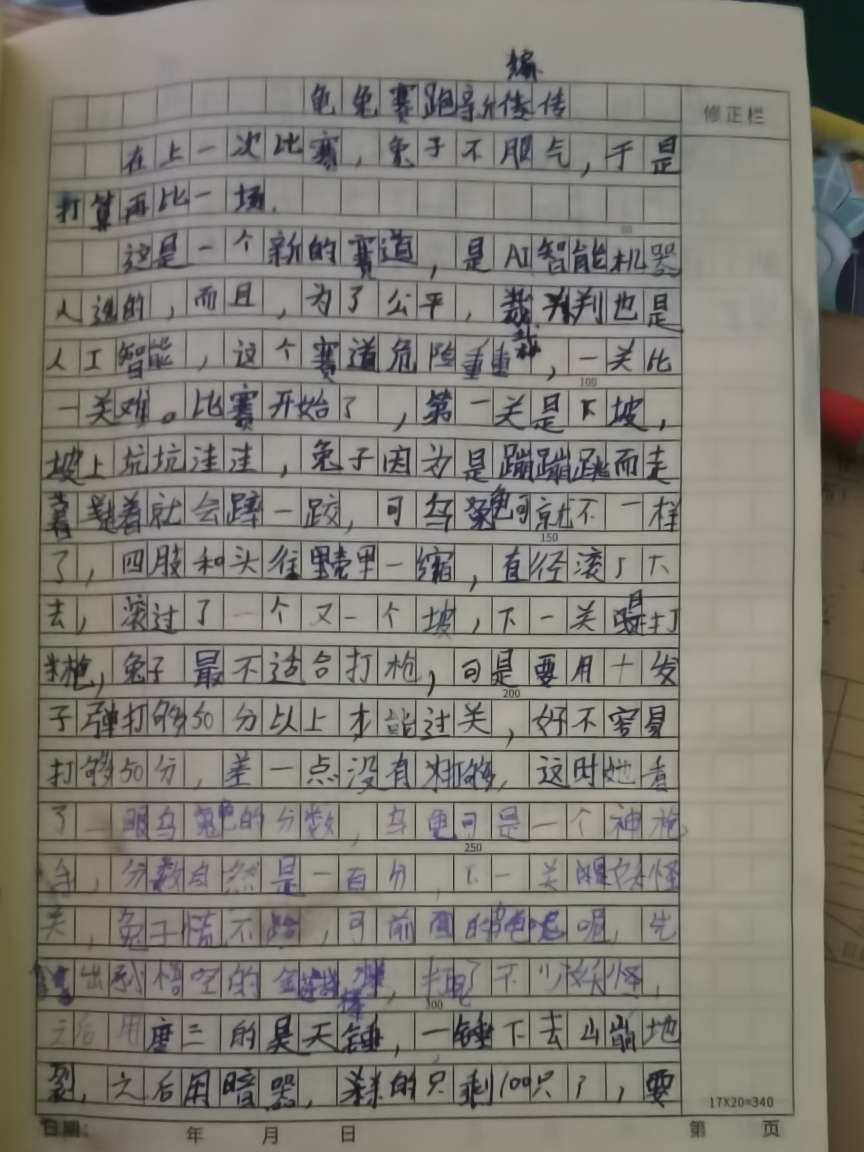 编
龟兔赛跑新传
修正栏
在上一次比赛，兔子不服气，于是
打算再比一场.
这是一个新的赛道，是AI智能机器
人造的，而且，为了公平，裁判也是
人工智能，这个赛道危险重重，一关比
一关难。比赛开始了，第一关是下坡，
坡上坑坑洼洼，兔子因为是蹦蹦跳而走
着就会摔一跤，可乌龟可就不一样
了，四肢和头往壳里一缩，直径滚了下
去，滚过了一个又一个坡，下一关是打
枪，兔子最不适合打枪，可是要用十发
子弹打够50分以上才能过关，好不容易
打够50分，差一点没有打够，这时她看
了一眼乌龟的分数，乌龟可是一个神枪
手，分数自然是一百分，下一关是妖怪
关，兔子慌不，可前面的龟呢，先
出孙悟空的金，打了不少妖怪，
之后用唐三的昊天锤，一锤下去山崩地
裂，之后用暗器，杀的只剩100只了，要
50
100
150
200
250
300
17X20=340
日期： 年 月 日 第 页